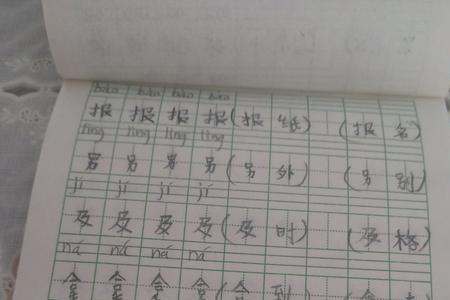 bào bào bào bào
报 报 报 报 (报 纸) (报 名)
lìng lìng lìng lìng
另 另 另 另 (另 外) (另 别)
jí jí jí jí
及 及 及 及 (及 时) (及 格)
ná ná ná ná